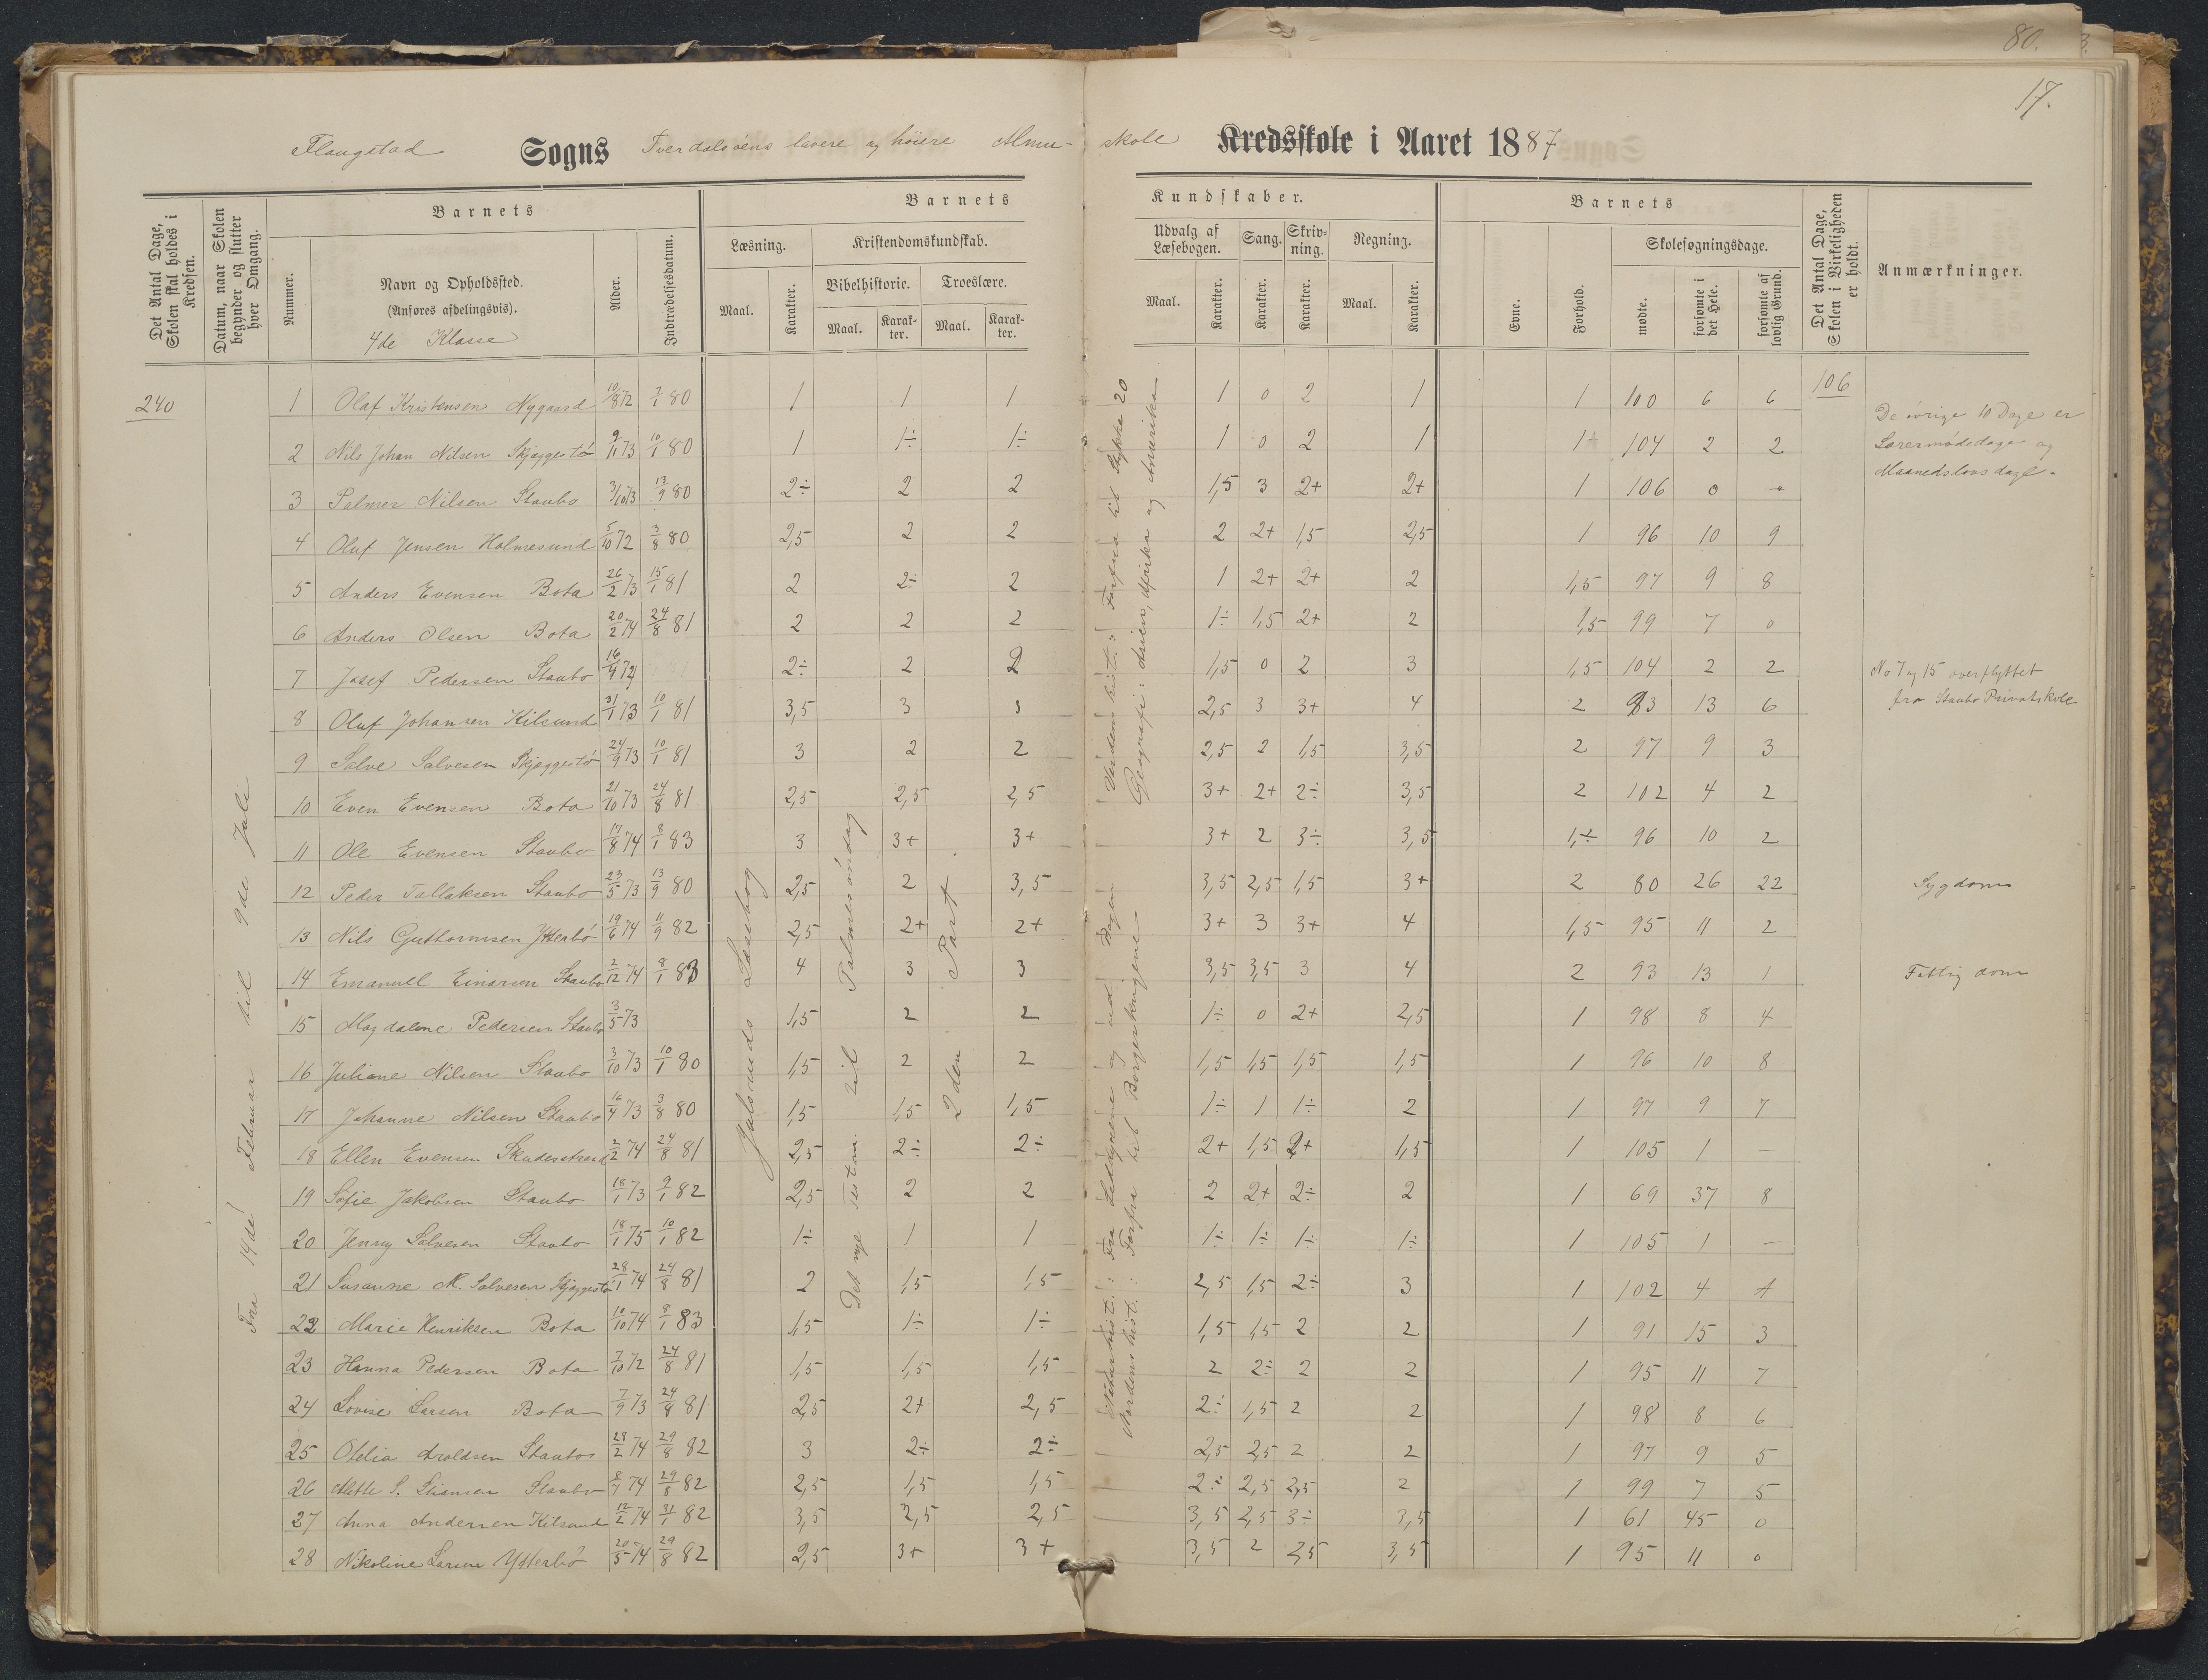 80.
17.
Flaugstad Sogns Tverdalsöens lavere og höiere Almu- skole Kredsskole i Aaret 1887
Det Antal Dage, Skolen skal holdes i Kredsen.
Datum, naar Skolen begynder og slutter hver Omgang.
Barnets
Nummer.
Navn og Opholdssted.
(Anføres afdelingsvis).
4de Klasse
Alder.
Indtrædelsesdatum.
Barnets
Læsning.
Maal.
Karakter.
Kristendomskundskab.
Bibelhistorie.
Maal.
Karakter.
Troeslære.
Maal.
Karakter.
Kundskaber.
Udvalg af Læsebogen.
Maal.
Karakter.
Sang.
Karakter.
Skrivning.
Karakter.
Regning.
Maal.
Karakter.
Barnets
Evne.
Forhold.
Skolesøgningsdage.
mødte.
forsømte i det Hele.
forsømte af lovlig Grund.
Det Antal Dage, Skolen i Virkeligheden er holdt.
Anmærkninger.
240
Fra 14de Februar til 9de Juli
Jensens Læsebog
Det nye Testam. til Palmesöndag
2den Part
Verdenshist.: Forfra til Stykke 20
Geografi: Asien, Afrika og Amerika
Nordens hist.: Forfra til Borgerkrigene
106
De övrige 10 Dage er
Læremödedage og
Maanedslovsdage.
1 Olaf Kristensen Nygaard 10/8 72 7/1 80 1 1 1 1 0 2 1 1 100 6 6
2 Nils Johan Nilsen Skjeggestö 9/11 73 10/1 80 1 1÷ 1÷ 1 0 2 1 1+ 104 2 2
3 Palmer Nilsen Staubo 3/10 73 13/9 80 2÷ 2 2 1,5 3 2+ 2+ 1 106 0
4 Oluf Jensen Holmesund 5/10 72 3/8 80 2,5 2 2 2 2+ 1,5 2,5 1 96 10 9
5 Anders Evensen Bota 26/2 73 15/1 81 2 2÷ 2 1 2+ 2+ 2 1,5 97 9 8
6 Anders Olsen Bota 20/2 74 24/8 81 2 2 2 1÷ 1,5 2+ 2 1,5 99 7 0
7 Josef Pedersen Staubo 16/4 72 2÷ 2 2 1,5 0 2 3 1,5 104 2 2 No 7 og 15 overflyttet
fra Staubo Privatskole
8 Oluf Johansen Kilsund 31/1 73 10/1 81 3,5 3 3 2,5 3 3+ 4 2 93 13 6
9 Salve Salvesen Skjeggestö 24/9 73 10/1 81 3 2 2 2,5 2 1,5 3,5 2 97 9 3
10 Even Evensen Bota 21/10 73 24/8 81 2,5 2,5 2,5 3+ 2+ 2÷ 3,5 2 102 4 2
11 Ole Evensen Staubo 17/8 74 8/1 83 3 3+ 3+ 3+ 2 3÷ 3,5 1÷ 96 10 2
12 Peder Tallaksen Staubo 23/5 73 13/9 80 2,5 2 3,5 3,5 2,5 1,5 3+ 2 80 26 22 Sygdom
13 Nils Guttormsen Ytterbö 19/6 74 11/9 82 2,5 2+ 2+ 3+ 3 3+ 4 1,5 95 11 2
14 Emanuell Einarsen Staubo 2/12 74 8/1 83 4 3 3 3,5 3,5 3 4 2 93 13 1 Fattigdom
15 Magdalene Pedersen Staubo 3/5 73 1,5 2 2 1÷ 0 2+ 2,5 1 98 8 4
16 Juliane Nilsen Staubo 3/10 73 10/1 80 1,5 2 2 1,5 1,5 1,5 1,5 1 96 10 8
17 Johanne Nilsen Staubo 16/4 73 3/8 80 1,5 1,5 1,5 1÷ 1 1÷ 2 1 97 9 7
18 Ellen Evensen Skudesstrand 2/2 74 24/8 81 2,5 2÷ 2÷ 2+ 1,5 2+ 1,5 1 105 1 —
19 Sofie Jakobsen Staubo 18/1 73 9/1 82 2,5 2 2 2 2+ 2÷ 2 1 69 37 8
20 Jenny Salvesen Staubo 18/1 75 10/1 82 1÷ 1 1 1÷ 1÷ 1÷ 1÷ 1 105 1 —
21 Susanne M. Salvesen Skjeggestö 28/1 74 24/8 81 2 1,5 1,5 2,5 1,5 2÷ 3 1 102 4 1
22 Marie Henriksen Bota 10/10 74 8/1 83 1,5 1÷ 1÷ 1,5 1,5 2 2 1 91 15 3
23 Hanna Pedersen Bota 7/10 72 24/8 81 1,5 1,5 1,5 2 2÷ 2 2 1 95 11 7
24 Lovise Larsen Bota 7/9 73 24/8 81 2,5 2+ 2,5 2÷ 1,5 2 2 1 98 8 6
25 Otelia Aroldsen Staubo 28/2 74 29/8 82 3 2÷ 2÷ 2,5 2,5 2 2 1 97 9 5
26 Mette S. Stiansen Staubo 8/7 74 29/8 82 2,5 1,5 1,5 2÷ 2,5 2,5 2 1 99 7 5
27 Anna Andersen Kilsund 12/2 74 31/1 82 3,5 2,5 2,5 3,5 2,5 3÷ 3,5 1 61 45 0
28 Nikoline Larsen Ytterbö 20/5 74 29/8 82 2,5 3+ 3+ 3,5 2 2,5 3,5 1 95 11 0